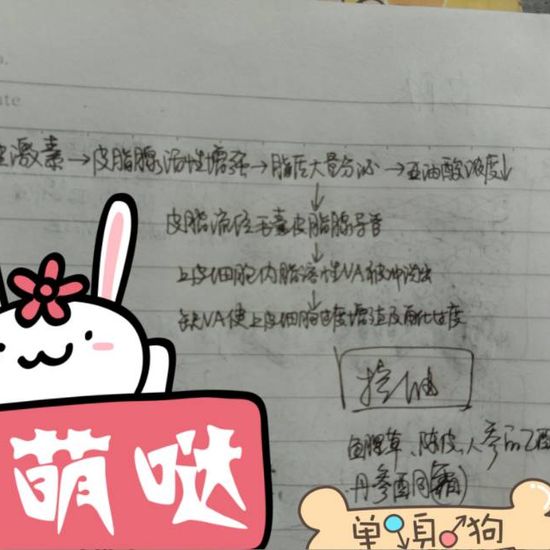 ate
激素→皮脂腺活性增强→脂质大量分泌→亚油酸浓度↓
↓
皮脂流经毛囊皮脂腺导管
↓
上皮细胞内脂溶性VA被冲淡
↓
缺VA使上皮细胞过度增殖及角化过度
控油
鱼腥草、陈皮、人参
丹参酮霜)
萌哒
单身狗